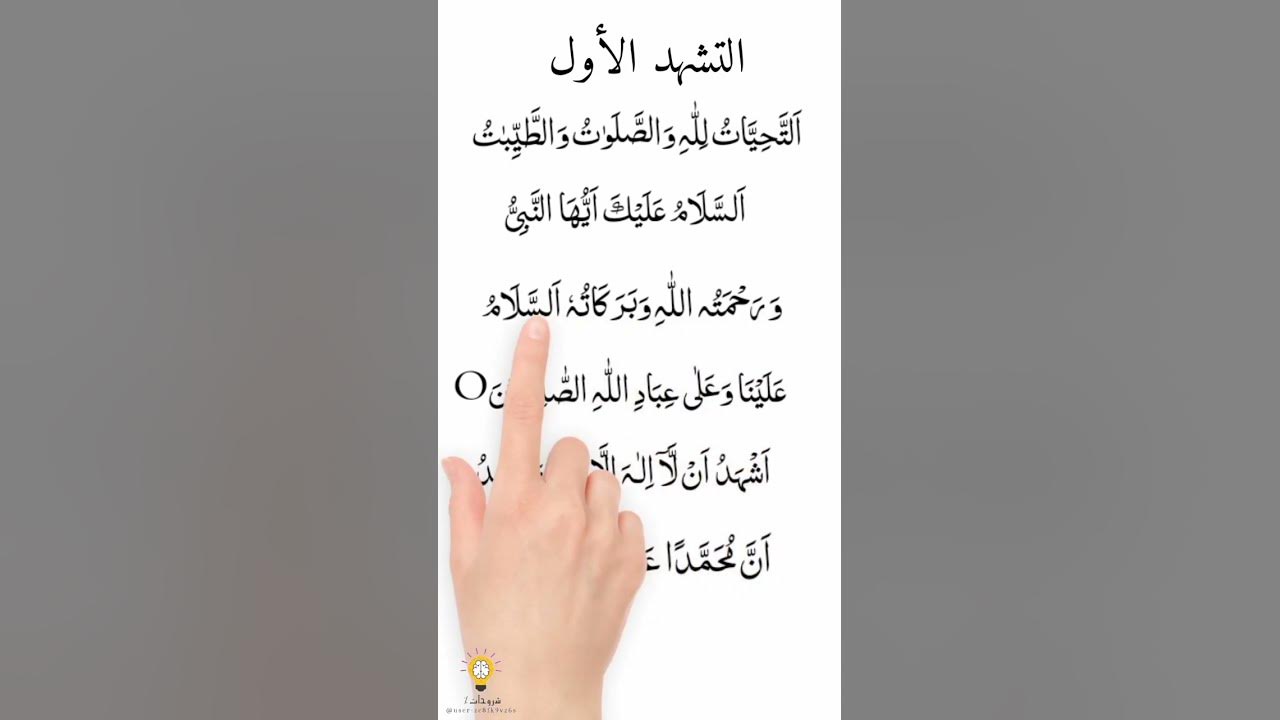 التشهد الأول
اَلتَّحِيَّاتُ لِلّٰهِ وَالصَّلَوٰتُ وَالطَّيِّبٰتُ
اَلسَّلَامُ عَلَيْكَ اَيُّهَا النَّبِىُّ
وَرَحْمَتُه اللّٰهِ وَبَرَكَاتُهٗ اَلسَّلَامُ
عَلَيْنَا وَعَلٰى عِبَادِ اللّٰهِ
اَشْهَدُ اَنْ لَّآ اِلٰهَ
اَنَّ مُحَمَّدًا
شروحات
@user-zc8fk9vz6s